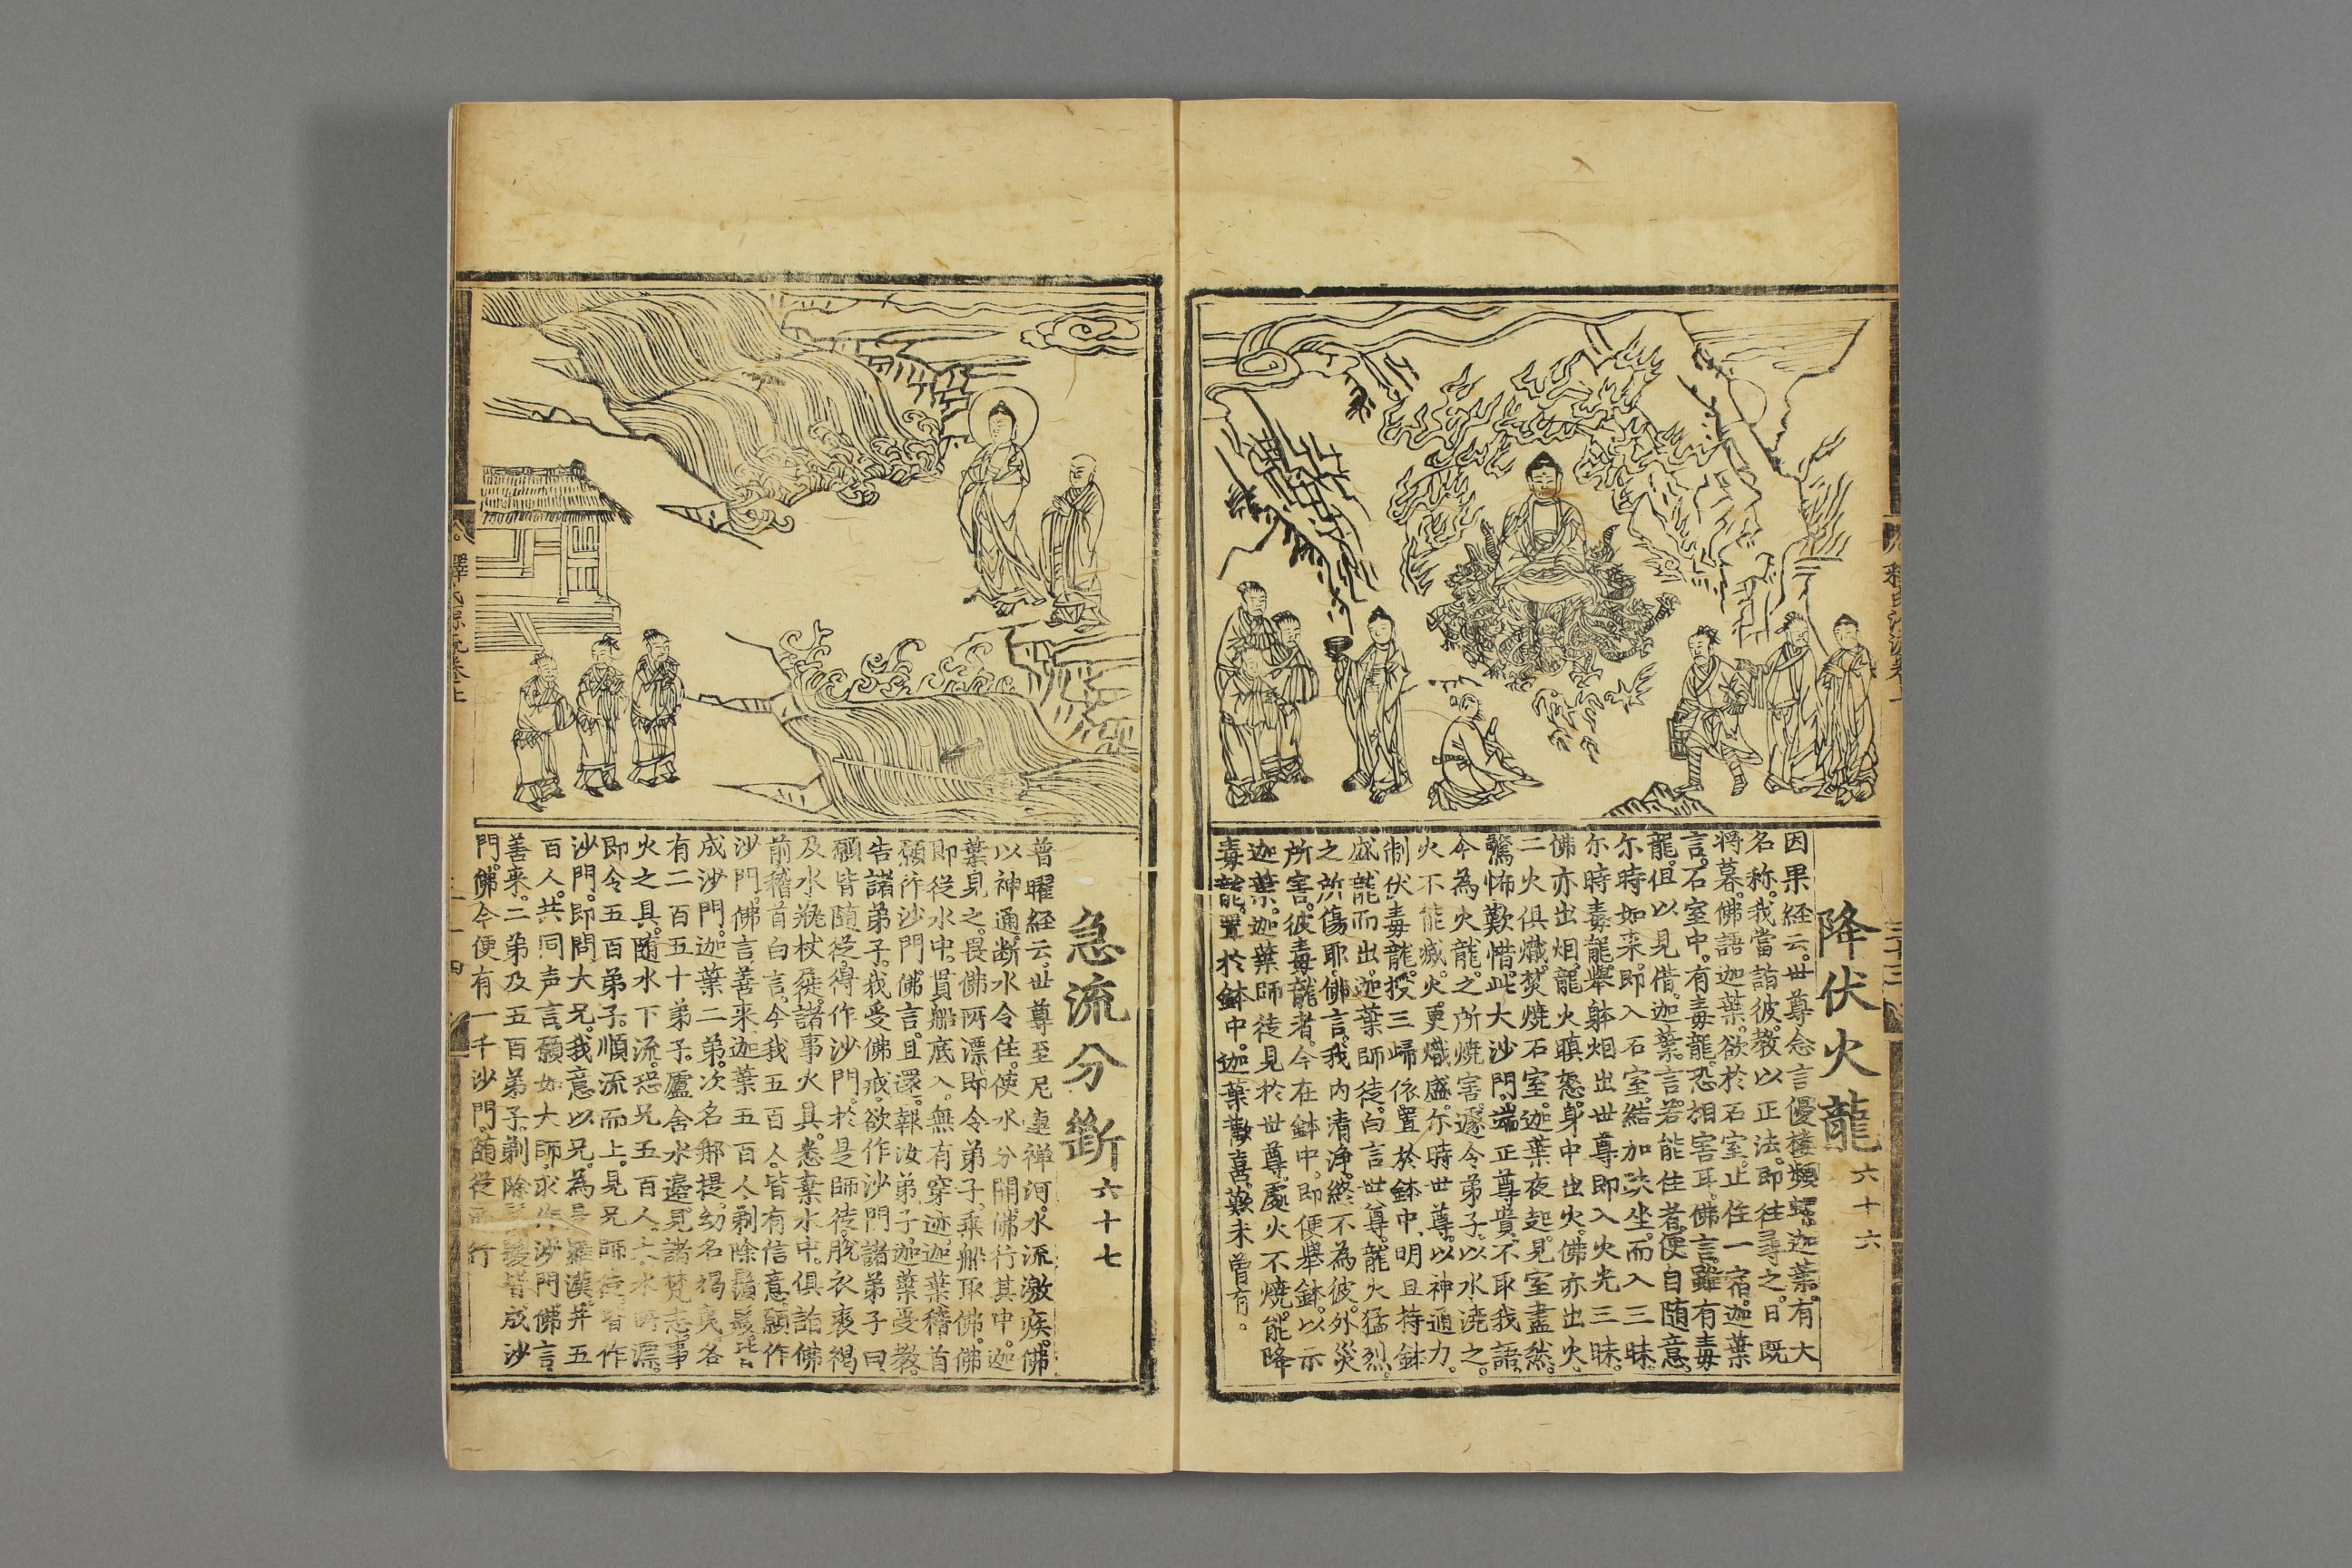 降伏火龍六十六
因果経云。世尊念言優樓頻螺迦葉。有大
名称。我當詣彼。教以正法。即往尋之。日既
将暮。佛語迦葉。欲於石室。止住一宿。迦葉
言。石室中。有毒龍。恐相害耳。佛言。雖有毒
龍。但以見借。迦葉。言。若能住者。便自随意。
尓時如来。即入石室。結加趺坐。而入三昧。
尓時毒龍。舉躰烟出世尊即入火光三昧。
佛亦出烟。龍火瞋怒。身中出火。佛亦出火。
二火俱熾。焚燒石室。迦葉夜起。見室盡然。
驚怖歎惜。此大沙門。端正尊貴。不取我語。
今為火龍。之所燒害。遽令弟子。以水澆之。
火不能滅。火。更熾盛。尓時世尊。以神通力。
制伏毒龍。授三歸依。置於鉢中。明旦持鉢
盛龍而出。迦葉師徒。白言世尊。龍火猛烈。
之所傷耶。佛言。我内清浄。終不為彼。外災
所害。彼毒龍者。今在鉢中。即便舉鉢。以示
迦葉。迦葉師徒見於世尊。處火不燒。能降
毒龍。置於鉢中。迦葉歡喜。歎未曾有。
急流分断六十七
普曜経云。世尊至尼連禅河。水流激疾。佛
以神通。断水令住。使水分開。佛行其中。迦
葉見之。畏佛所漂。即令弟子。乘船取佛。佛
即従水中。貫船底入。無有穿迹。迦葉稽首
願作沙門。佛言。且還。報汝弟子。迦葉受教。
告諸弟子。我受佛戒。欲作沙門諸弟子曰
願皆随従。得作沙門。於是師徒。脫衣裘褐
及水瓶杖屣。諸事火具。悉棄水中。俱詣佛
前稽首白言。今我五百人。皆有信意。願作
沙門。佛言。善来。迦葉五百人。剃除鬚髮。皆
成沙門。迦葉二弟。次名那提。幼名揭夷。各
有二百五十弟子。廬舍水邊。見諸梵志。事
火之具。随水下流。恐兄五百人。為水所漂。
即令五百弟子。順流而上。見兄師徒。皆作
沙門。即問大兄。我意以兄。為是羅漢。并五
百人。共同声言。願如大師。求作沙門佛言。
善来。二弟及五百弟子。剃除鬚髮皆成沙
門。佛今便有一千沙門。随従而行